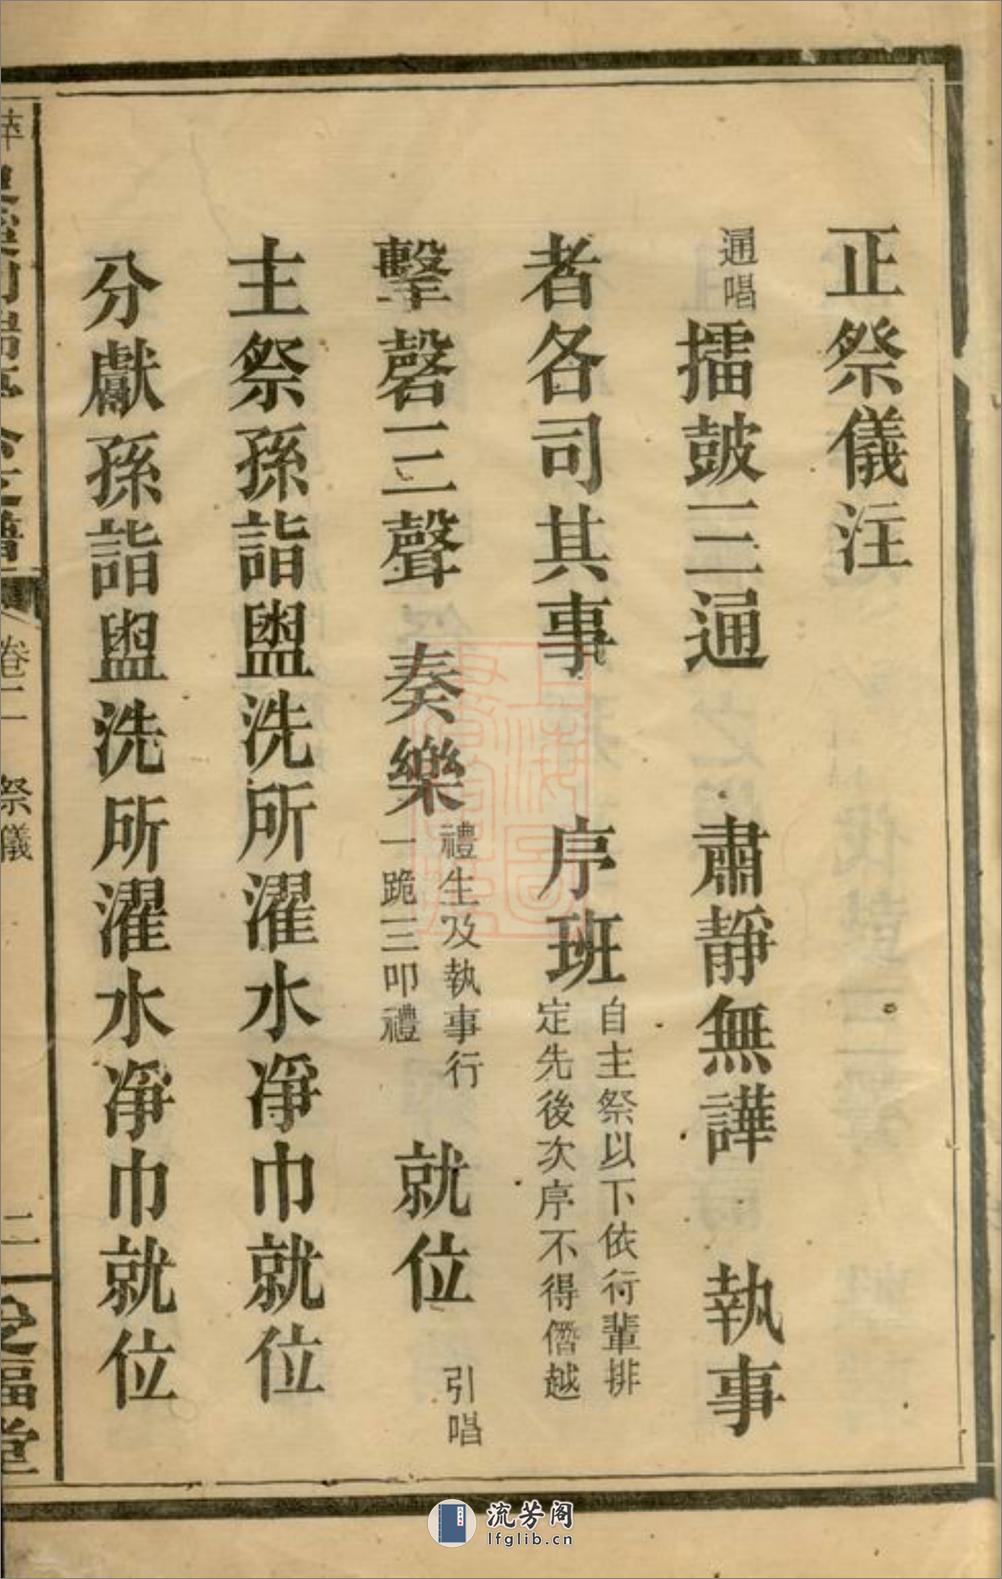 正祭儀注
通唱擂鼓三通　肅靜無譁　執事
者各司其事　序班自主祭以下依行輩排
定先後次序不得僭越
擊磬三聲　奏樂禮生及執事行
一跪三叩禮　就位　引唱
主祭孫詣盥洗所濯水凈巾就位
分獻孫詣盥洗所濯水凈巾就位
卷二　祭儀
二
福堂
流芳阁
lfglib.cn